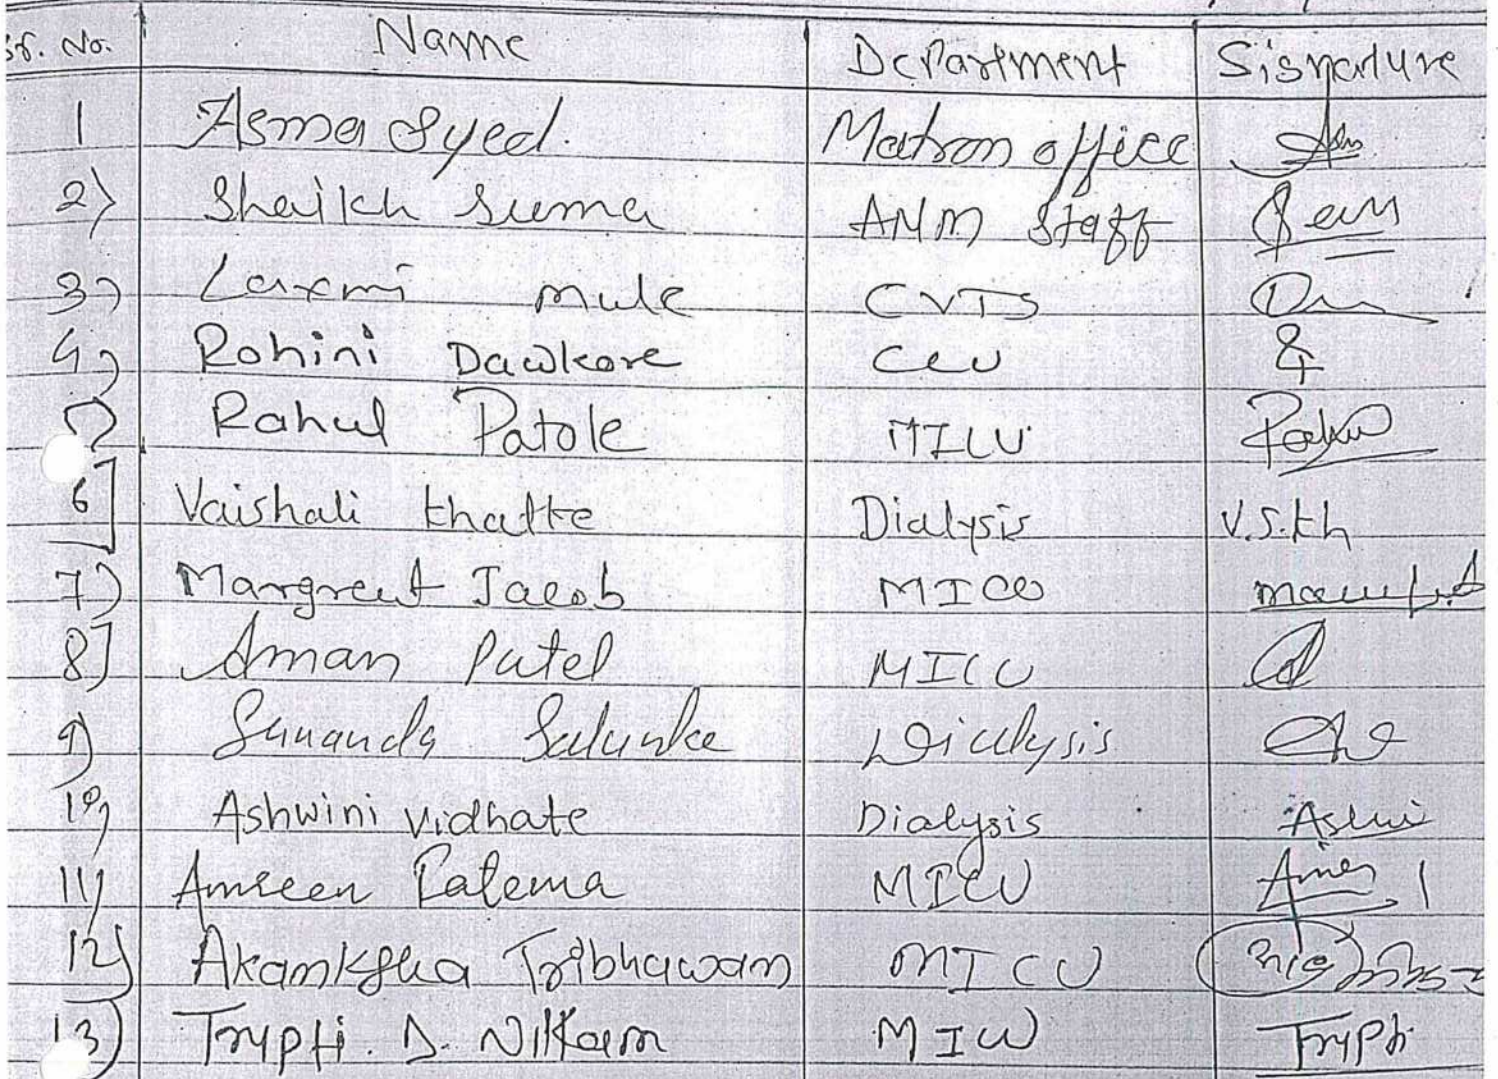 Sr. No. Name Department Signature
1 Asma Syed. Matron office
2) Shaikh Suma ANM Staff
3) Laxmi Mule CVTS
4) Rohini Dawkare CCU
5) Rahul Patole MICU
6] Vaishali Khatke Dialysis V.S.Kh
7) Margreet Jacob MICU
8] Aman Patel MICU
9) Sunanda Salunke Dialysis
10) Ashwini Vidhate Dialysis Ashwi
11) Amreen Fatema MICU
12) Akanksha Tribhawan MICU
13) Trypti. D. Nilkam MICU Trypti